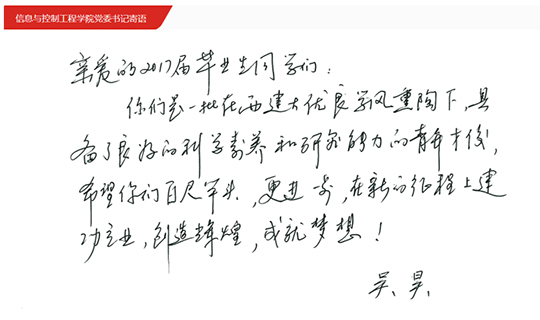 信息与控制工程学院党委书记寄语
亲爱的2017届毕业生同学们：
你们是一批在西建大优良学风熏陶下，具
备了良好的科学素养和研究能力的青年才俊，
希望你们百尺竿头，更进一步，在新的征程上建
功立业，创造辉煌，成就梦想！
吴昊